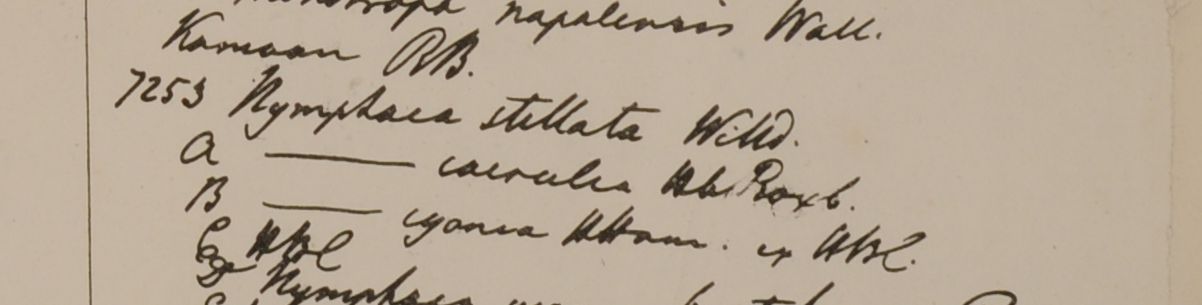 napalensis Wall.
Kamaon RB.
7253 Nymphaea stellata Willd.
A ——— caerulea Hb Roxb.
B ——— cyanea HHam. ex HBC.
C HBC
Nymphaea